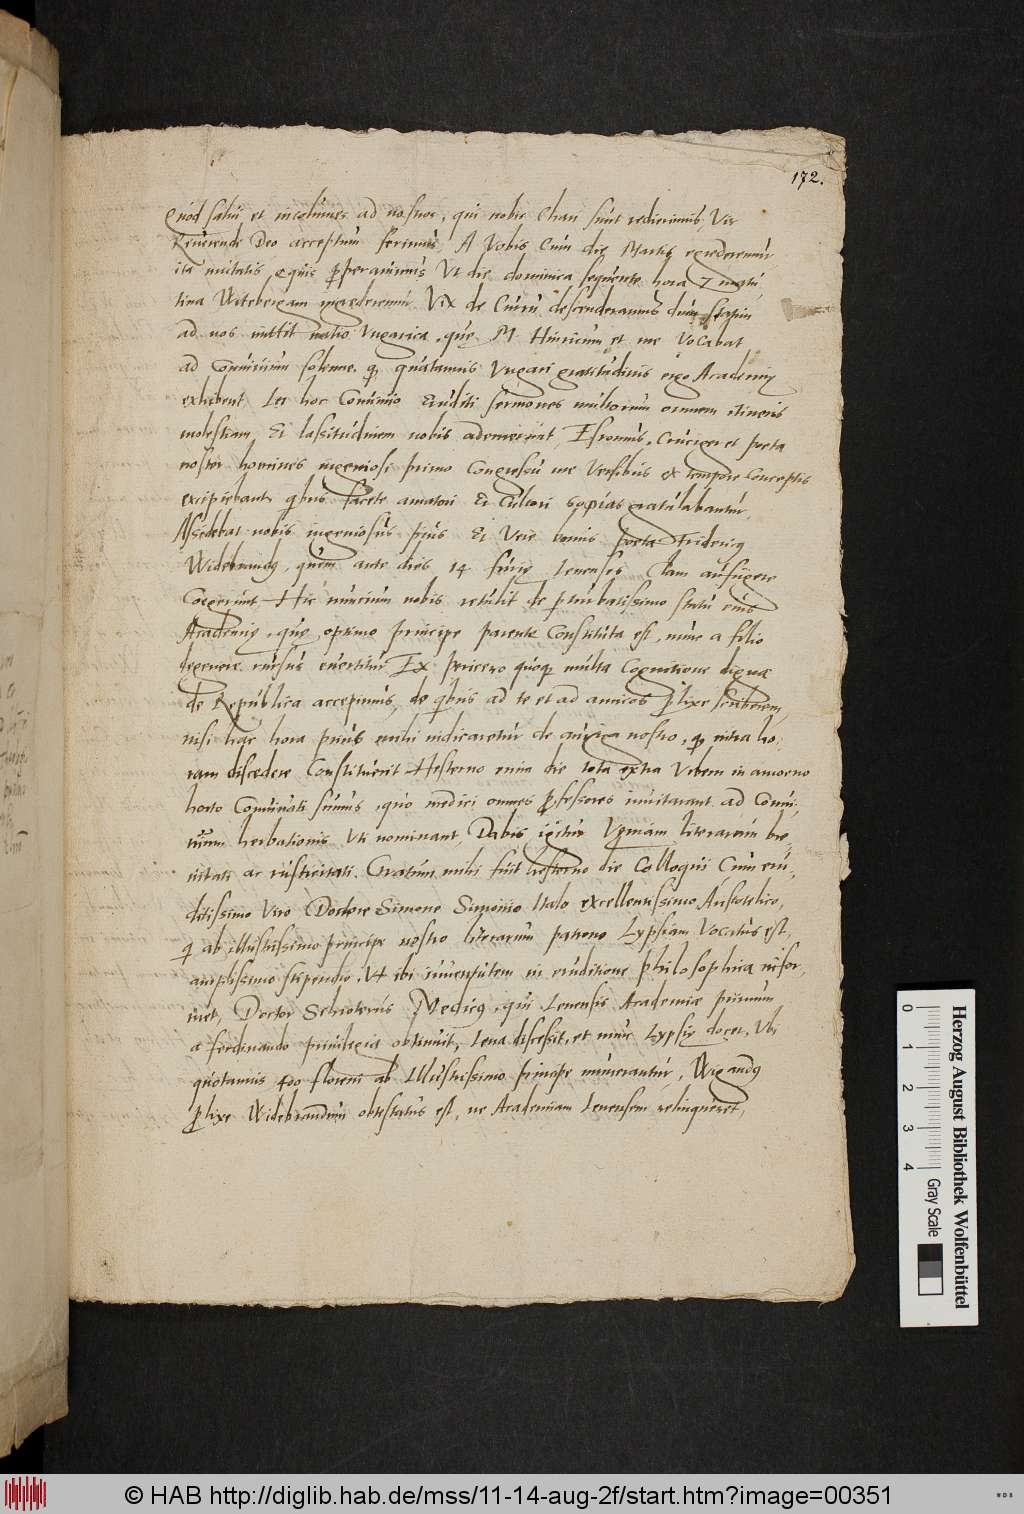 172.
Quod salui et incolumes ad nostros, qui nobis Chari sunt redierimus, Vir
Reuerende Deo acceptum ferimus, A Vobis Cum die Martis egrederemur
ita mutatis equis properauimus Vt die dominica sequente hora 7 matu,
tina Witebergam ingrederemur Vix de Curru descenderamus dum
ad nos mittit natio Vngarica, quę M Hinricum et me Vocabat
ad Conuiuium solenne, quod quotannis Vngari gratitudinis ergo Academię
exhibent Is hoc Conuiuio Eruditi sermones multorum omnem itineris
molestiam Et lassitudinem nobis ademerunt, Esromus, Cruciger et poeta
noster homines ingeniosi primo Congressu me Versibus ex tempore Conceptis
excipiebant, quibus facete amatori Et Cultori σοφίας gratulabantur,
Assidebat nobis ingeniosus pius Et Vere bonus poeta Fridericus
Widebrandus, quem ante dies 14 furię Ienenses Clam aufugere
Coegerunt Hic nuncium nobis retulit de perturbatissimo statu eius
Academię, quę optimo principe parente Constituta est, nunc a filio
degenere rursus euertitur Ex Peucero quoque multa Cognitione digna
de Republica accepimus, de quibus ad te et ad amicos prolixe scriberem,
nisi hac hora prius mihi indicaretur de auriga nostro, quod intra ho,
ram discedere Constituerit Hesterno enim die tota extra Vrbem in amoeno
horto Conuiuati sumus, quo medici omnes professores inuitarant ad Conui,
uium herbationis Vti nominant, Dabis igitur Veniam literarum bre,
uitati ac rusticitati. Gratum mihi fuit hesterno die Colloqui Cum eru,
ditissimo Viro Doctore Simone Simonio Italo excellentissimo Aristotelico,
qui ab illustrissimo principe nostro literarum patrono Lypsiam Vocatus est,
amplissimo stipendio, Vt ibi iuuentutem in eruditione philosophica infor,
met, Doctor Schroterus Medicus, qui Ienensis Academiae primum
a Ferdinando priuilegia obtinuit, Iena discessit, et nunc Lypsię docet, Vbi
quotannis 400 floreni ab Illustrissimo principe numerantur, Wigandus
prolixe Widebrandum obtestatus est, ne Academiam Ienensem relinqueret,
Herzog August Bibliothek Wolfenbüttel
0 1 2 3 4 Gray Scale
© HAB http://diglib.hab.de/mss/11-14-aug-2f/start.htm?image=00351